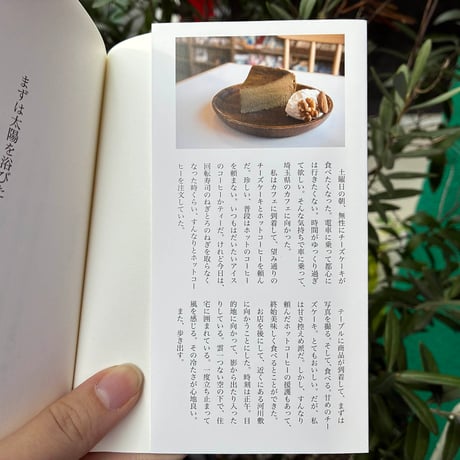 土曜日の朝、無性にチーズケーキが
食べたくなった。電車に乗って都心に
は行きたくない。時間がゆっくり過ぎ
て欲しい。そんな気持ちで車に乗って、
埼玉県のカフェに向かった。
私はカフェに到着して、望み通りの
チーズケーキとホットコーヒーを頼ん
だ。珍しい。普段はホットのコーヒー
を頼まない。いつもはだいたいアイス
のコーヒーかティーだ。けれど今日は、
回転寿司のねぎとろのねぎを取らなく
なった時くらい、すんなりとホットコー
ヒーを注文していた。
テーブルに商品が到着して、まずは
写真を撮る。そして、食べる。甘めのチー
ズケーキ。とてもおいしい。だが、私
は甘さ控えめ派だ。しかし、すんなり
頼んだホットコーヒーの援護もあって、
終始美味しく食べることができた。
お店を後にして、近くにある河川敷
に向かうことにした。時刻は正午。目
的地に向かって、影から出たり入った
りしている。雲一つない空の下で、住
宅に囲まれている。一度立ち止まって
風を感じる。その冷たさが心地良い。
また、歩き出す。
まずは太陽を浴びた